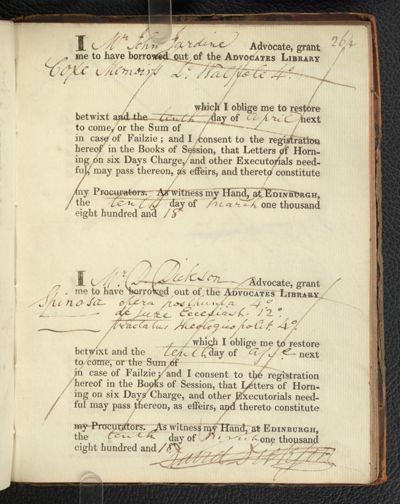 264
I Mr John Jardine Advocate, grant
me to have borrowed out of the ADVOCATES LIBRARY
Coxe Memoirs Ld. Walpole 4o.
which I oblige me to restore
betwixt and the tenth day of April next
to come, or the Sum of
in case of Failzie; and I consent to the registration
hereof in the Books of Session, that Letters of Horn-
ing on six Days Charge, and other Executorials need-
ful, may pass thereon, as effeirs, and thereto constitute
my Procurators. As witness my Hand, at EDINBURGH,
the tenth day of March one thousand
eight hundred and 18
I Mr D. Dickson Advocate, grant
me to have borrowed out of the ADVOCATES LIBRARY
Spinosa opera posthuma 4o
de Jure Ecclesiast. 12o
tractatus theologicopolit. 4o
which I oblige me to restore
betwixt and the tenth day of next
to come, or the Sum of
in case of Failzie; and I consent to the registration
hereof in the Books of Session, that Letters of Horn-
ing on six Days Charge, and other Executorials need-
ful may pass thereon, as effeirs, and thereto constitute
my Procurators. As witness my Hand, at EDINBURGH,
the tenth day of March one thousand
eight hundred and 18
David Dickson